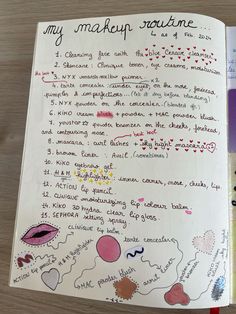 my makeup routine ...
as of Feb 2024
1. Cleansing face with the blue Cerave cleanser
2. Skincare: Clinique toner, eye creams, moisturiser
the best
3. NYX marshmellow primer x2
4. tarte concealer: under eyes, on the nose, forehead
pimples & imperfections
5. NYX powder on the concealer
6. KIKO cream blush + powder + MAC powder blush.
7. powder bronzer on the cheeks, forehead,
and contouring nose.
best mascara
8. mascara: curl lashes + sky high mascara
9. brown liner: avril (sometimes)
10. KIKO eyebrow gel
11. H&M highlighter: inner corners, nose, cheeks, lips
12. ACTION lip pencil.
13. CLINIQUE moisturizing lip colour balm.
14. KIKO 3D hydra clear lipgloss.
15. SEPHORA setting spray
CLINIQUE lip balm
tarte concealer
H&M highlighter
ACTION lip liner
powder blush
avril liner
MAC